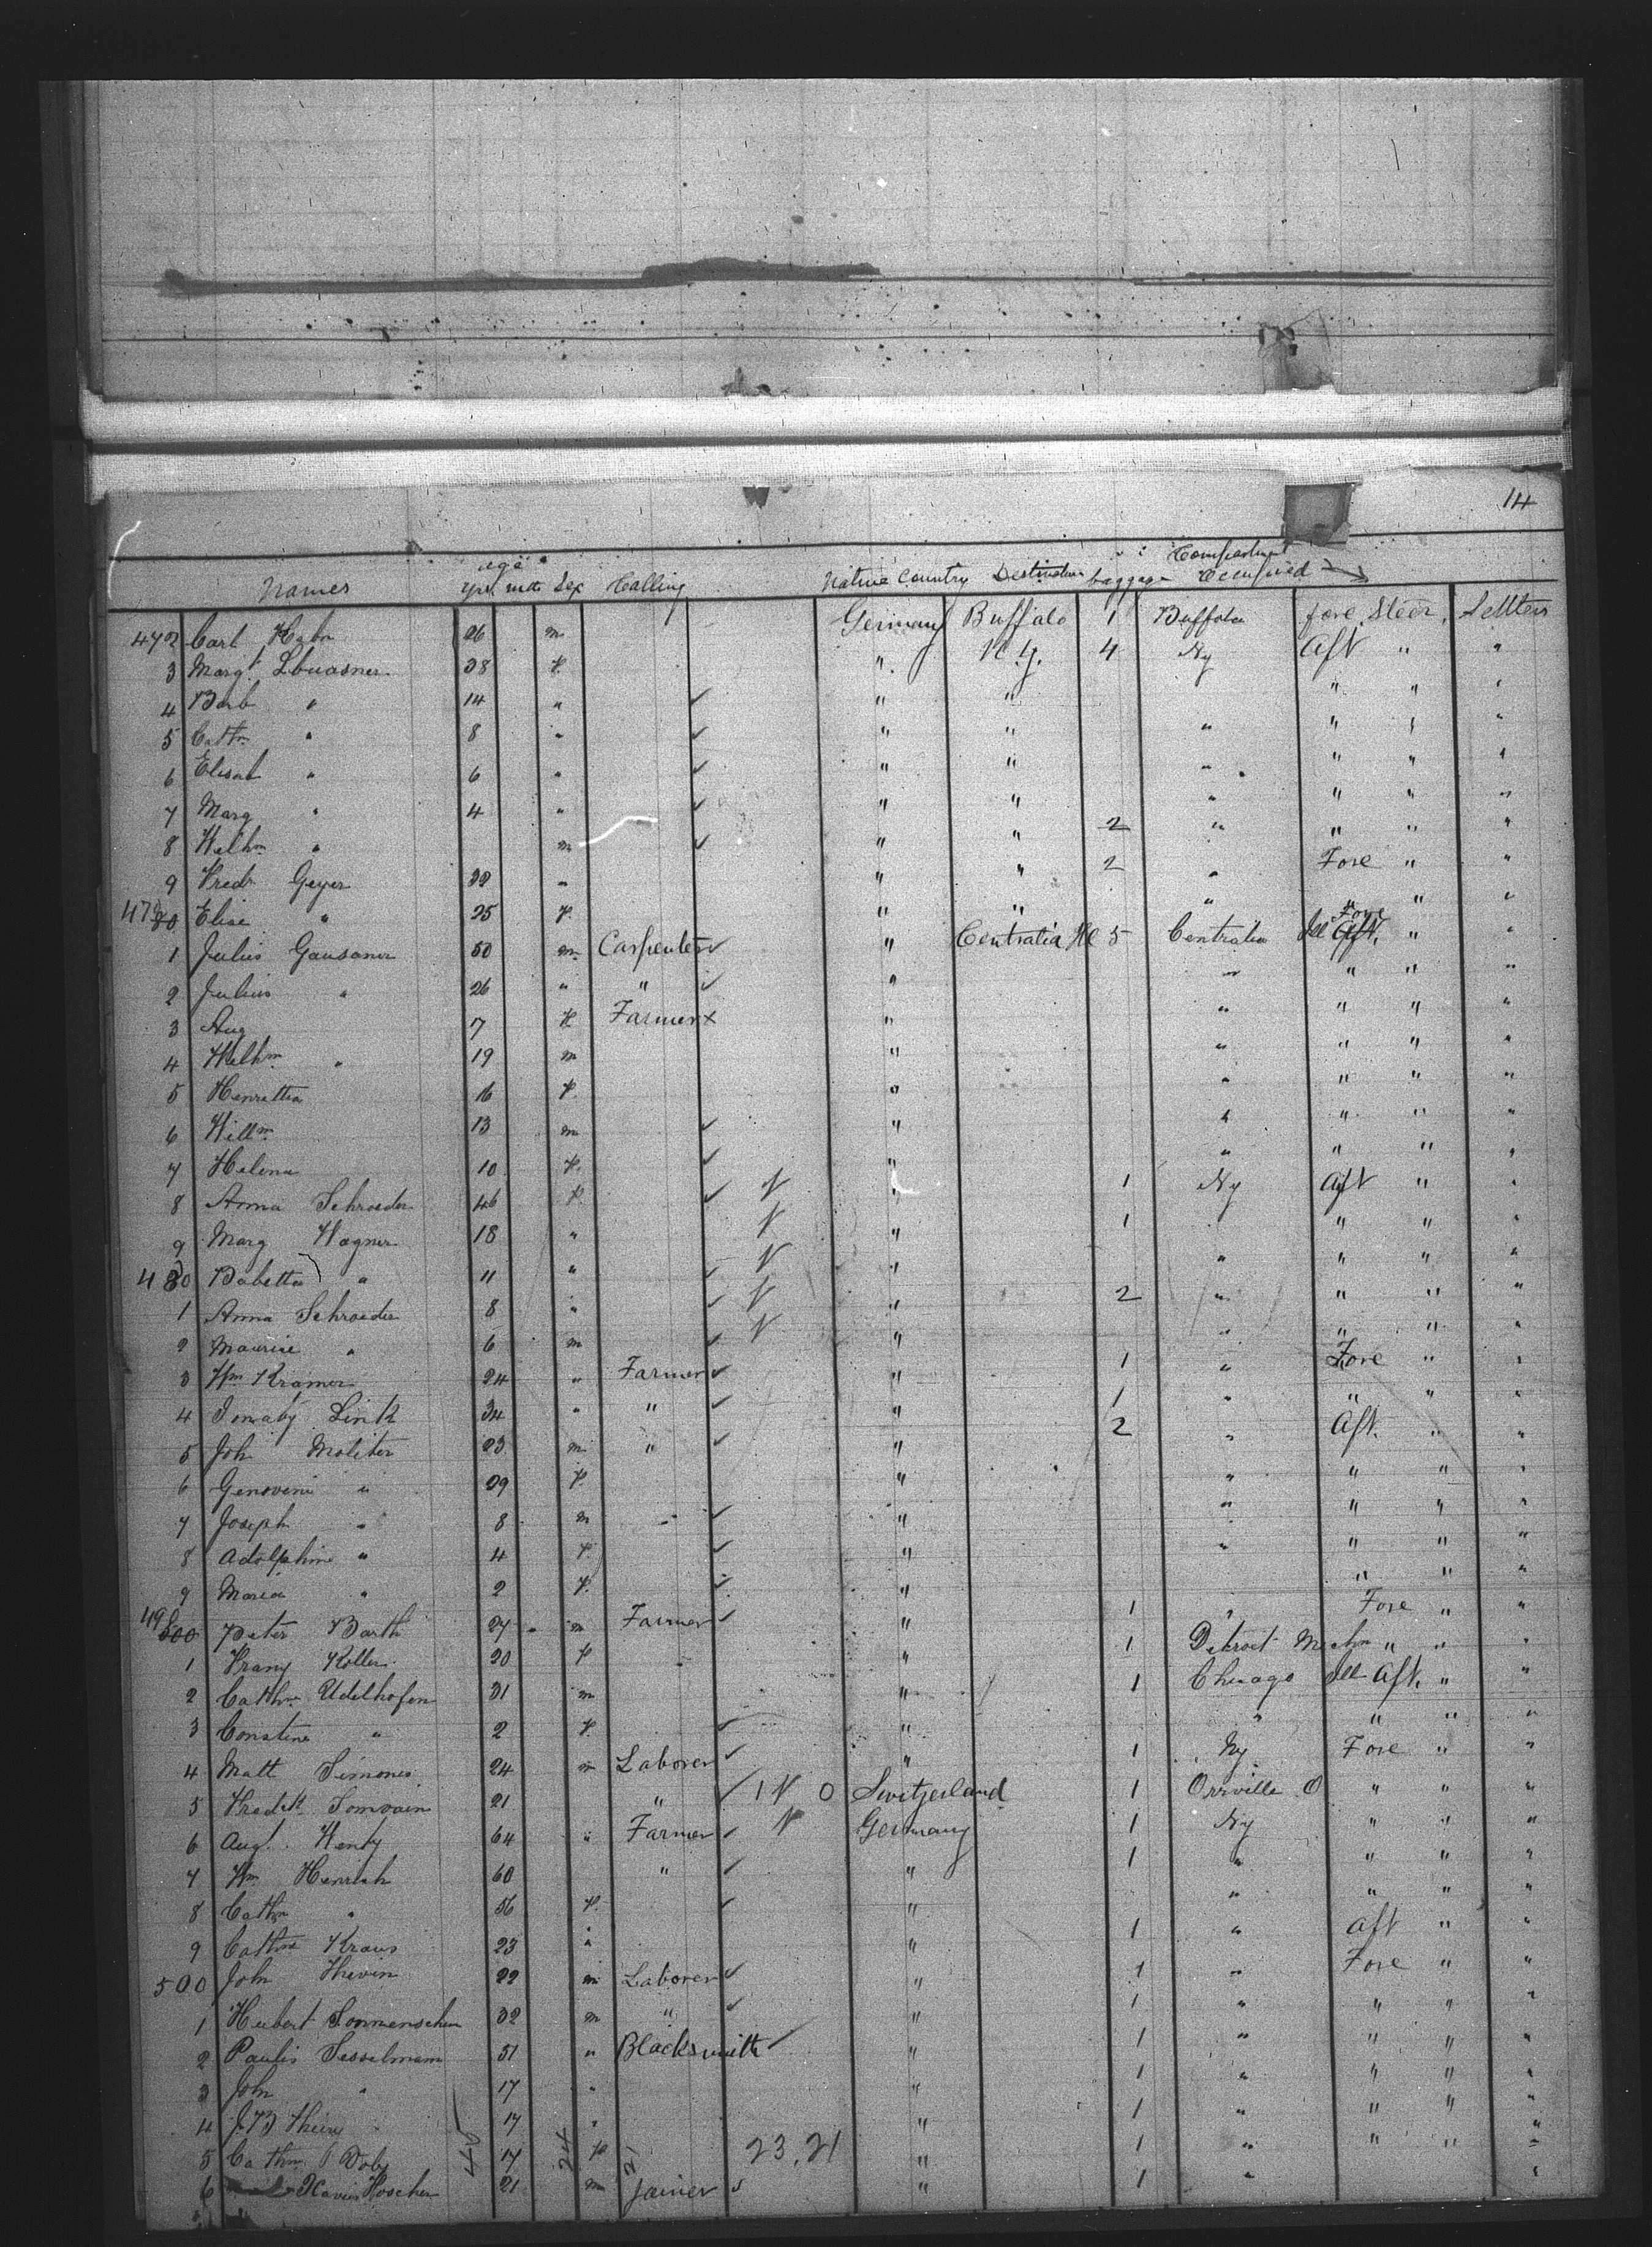 14
Names age yrs. mth Sex Calling Native Country Destination baggage Compartment Occupied
472 Carl Hahn 26 m Germany Buffalo 1 Buffalo fore Steer. Settlers
3 Margt. 38 f " N.Y. 4 Ny Aft " "
4 Barb " 14 " " " " " "
5 Cathn " 8 " " " " " " "
6 Elisab " 6 " " " " " " "
7 Marg " 4 " " " " " " "
8 Wilhm " m " " 2 " " " "
9 Fredr Geyer 32 " " " 2 " Fore " "
47 80 Elise " 25 f " " " " " "
1 Julius Gausaner 50 m Carpenter " Centralia Ill 5 Centralia Ill Fore Aft. " "
2 Julius " 26 " " " " " " "
3 Aug 17 f Farmer x " " " " "
4 Wilhm " 19 m " " " " "
5 Henretta 16 f. " " " " "
6 Willm 13 m " " " " "
7 Helena 10 f. " " " " "
8 Anna Schroeder 46 f " 1 Ny Aft " "
9 Marg Wagner 18 " " 1 " " "
480 Babetta " 11 " " " " " "
1 Anna Schroeder 8 " " 2 " " " "
2 Maurice " 6 m " " " " "
3 Wm Kramer 24 " Farmer " 1 " Fore " "
4 Link 34 " " " 1 " " " "
5 Joh Moliter 23 m " " 2 " Aft. " "
6 Genoveni " 29 f. " " " " "
7 Joseph " 8 m " " " " " "
8 Adolphine " 4 f. " " " " "
9 Maria " 2 f. " " " "
49 500 Peter Barth 27 m Farmer " 1 " Fore " "
1 Franz Koller 20 f " 1 Detroit Mich " " "
2 Cathn Udelhofen 31 m " 1 Chicago Ill Aft. " "
3 Constine " 2 f. " " " " "
4 Matt Simones 24 m Laborer " 1 Ny Fore " "
5 Fredk Somvain 21 " 1 N O Switzerland 1 Orrville O " " "
6 Augt. 64 " Farmer N Germany 1 Ny " " "
7 Wm Henrich 60 " " 1 " " " "
8 Cathn " 56 f. " " " " "
9 Cathn Kraus 23 " " 1 " Aft " "
500 John 22 m Laborer " 1 " Fore " "
1 Hubert Sonnenschein 32 m " " 1 " " " "
2 Paulis Sesselmann 51 " Blacksmith " 1 " " " "
3 John " 17 " " 1 " " " "
4 J B 17 " " 1 " " " "
5 Cathn Doby 17 f " 1 " " " "
45 24 21 23, 21
6 Xavier Hoscher 21 m Joiner " 1 " "